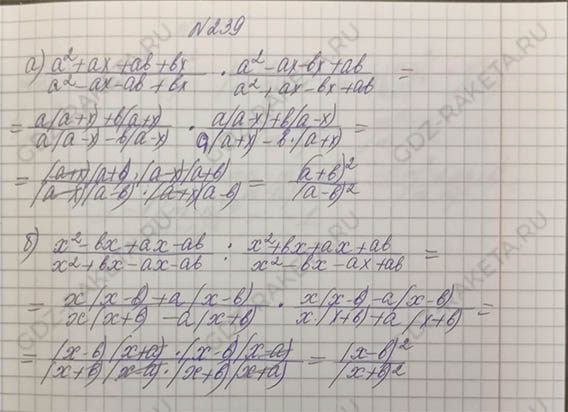 №239
а) (a²+ax+ab+bx)/(a²-ax-ab+bx) · (a²-ax-bx+ab)/(a²+ax-bx+ab) =
= (a(a+x)+b(a+x))/(a(a-x)-b(a-x)) · (a(a-x)+b(a-x))/(a(a+x)-b·(a+x)) =
= ((a+x)(a+b)·(a-x)(a+b))/((a-x)(a-b)·(a+x)(a-b)) = (a+b)²/(a-b)²
б) (x²-bx+ax-ab)/(x²+bx-ax-ab) : (x²+bx+ax+ab)/(x²-bx-ax+ab) =
= (x(x-b)+a(x-b))/(x(x+b)-a(x+b)) · (x(x-b)-a(x-b))/(x(x+b)+a(x+b)) =
= ((x-b)(x+a)·(x-b)(x-a))/((x+b)(x-a)·(x+b)(x+a)) = (x-b)²/(x+b)²
GDZ-RAKETA.RU